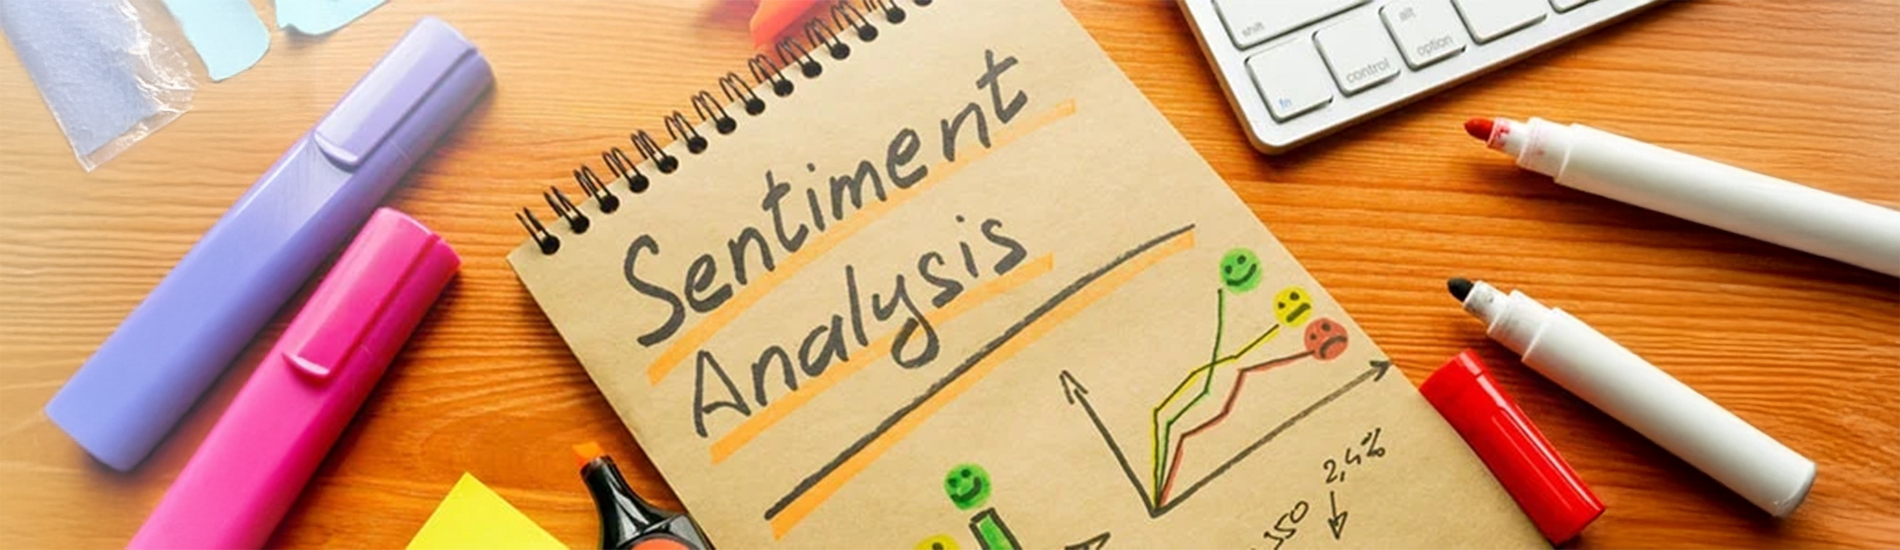 Sentiment
Analysis
2,4%
350
shift
fn
control
alt
option